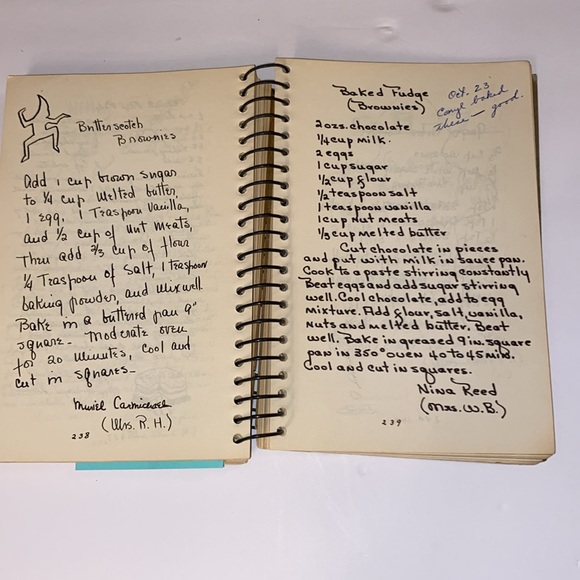 Butterscotch
Brownies
Add 1 cup brown sugar
to 1/4 cup melted butter,
1 egg, 1 Teaspoon Vanilla,
and 1/2 cup of nut meats,
Then add 2/3 cup of flour
1/4 Teaspoon of Salt, 1 teaspoon
baking powder, and mix well
Bake in a buttered pan 9"
square - Moderate oven
for 20 minutes, cool and
cut in squares -
Muriel Carmichael
(Mrs. R. H.)
238
Baked Fudge
(Brownies)
Oct. 23
Caryl baked
these - good.
2 ozs. chocolate
1/4 cup milk.
2 eggs
1 cup sugar
1/2 cup flour
1/2 teaspoon salt
1 teaspoon vanilla
1 cup nut meats
1/3 cup melted batter
Cut chocolate in pieces
and put with milk in sauce pan.
Cook to a paste stirring constantly
Beat eggs and add sugar stirring
well. Cool chocolate, add to egg
mixture. Add flour, salt, vanilla,
nuts and melted butter. Beat
well. Bake in greased 9 in. square
pan in 350° oven 40 to 45 min.
Cool and cut in squares.
Nina Reed
(Mrs. W. B.)
239